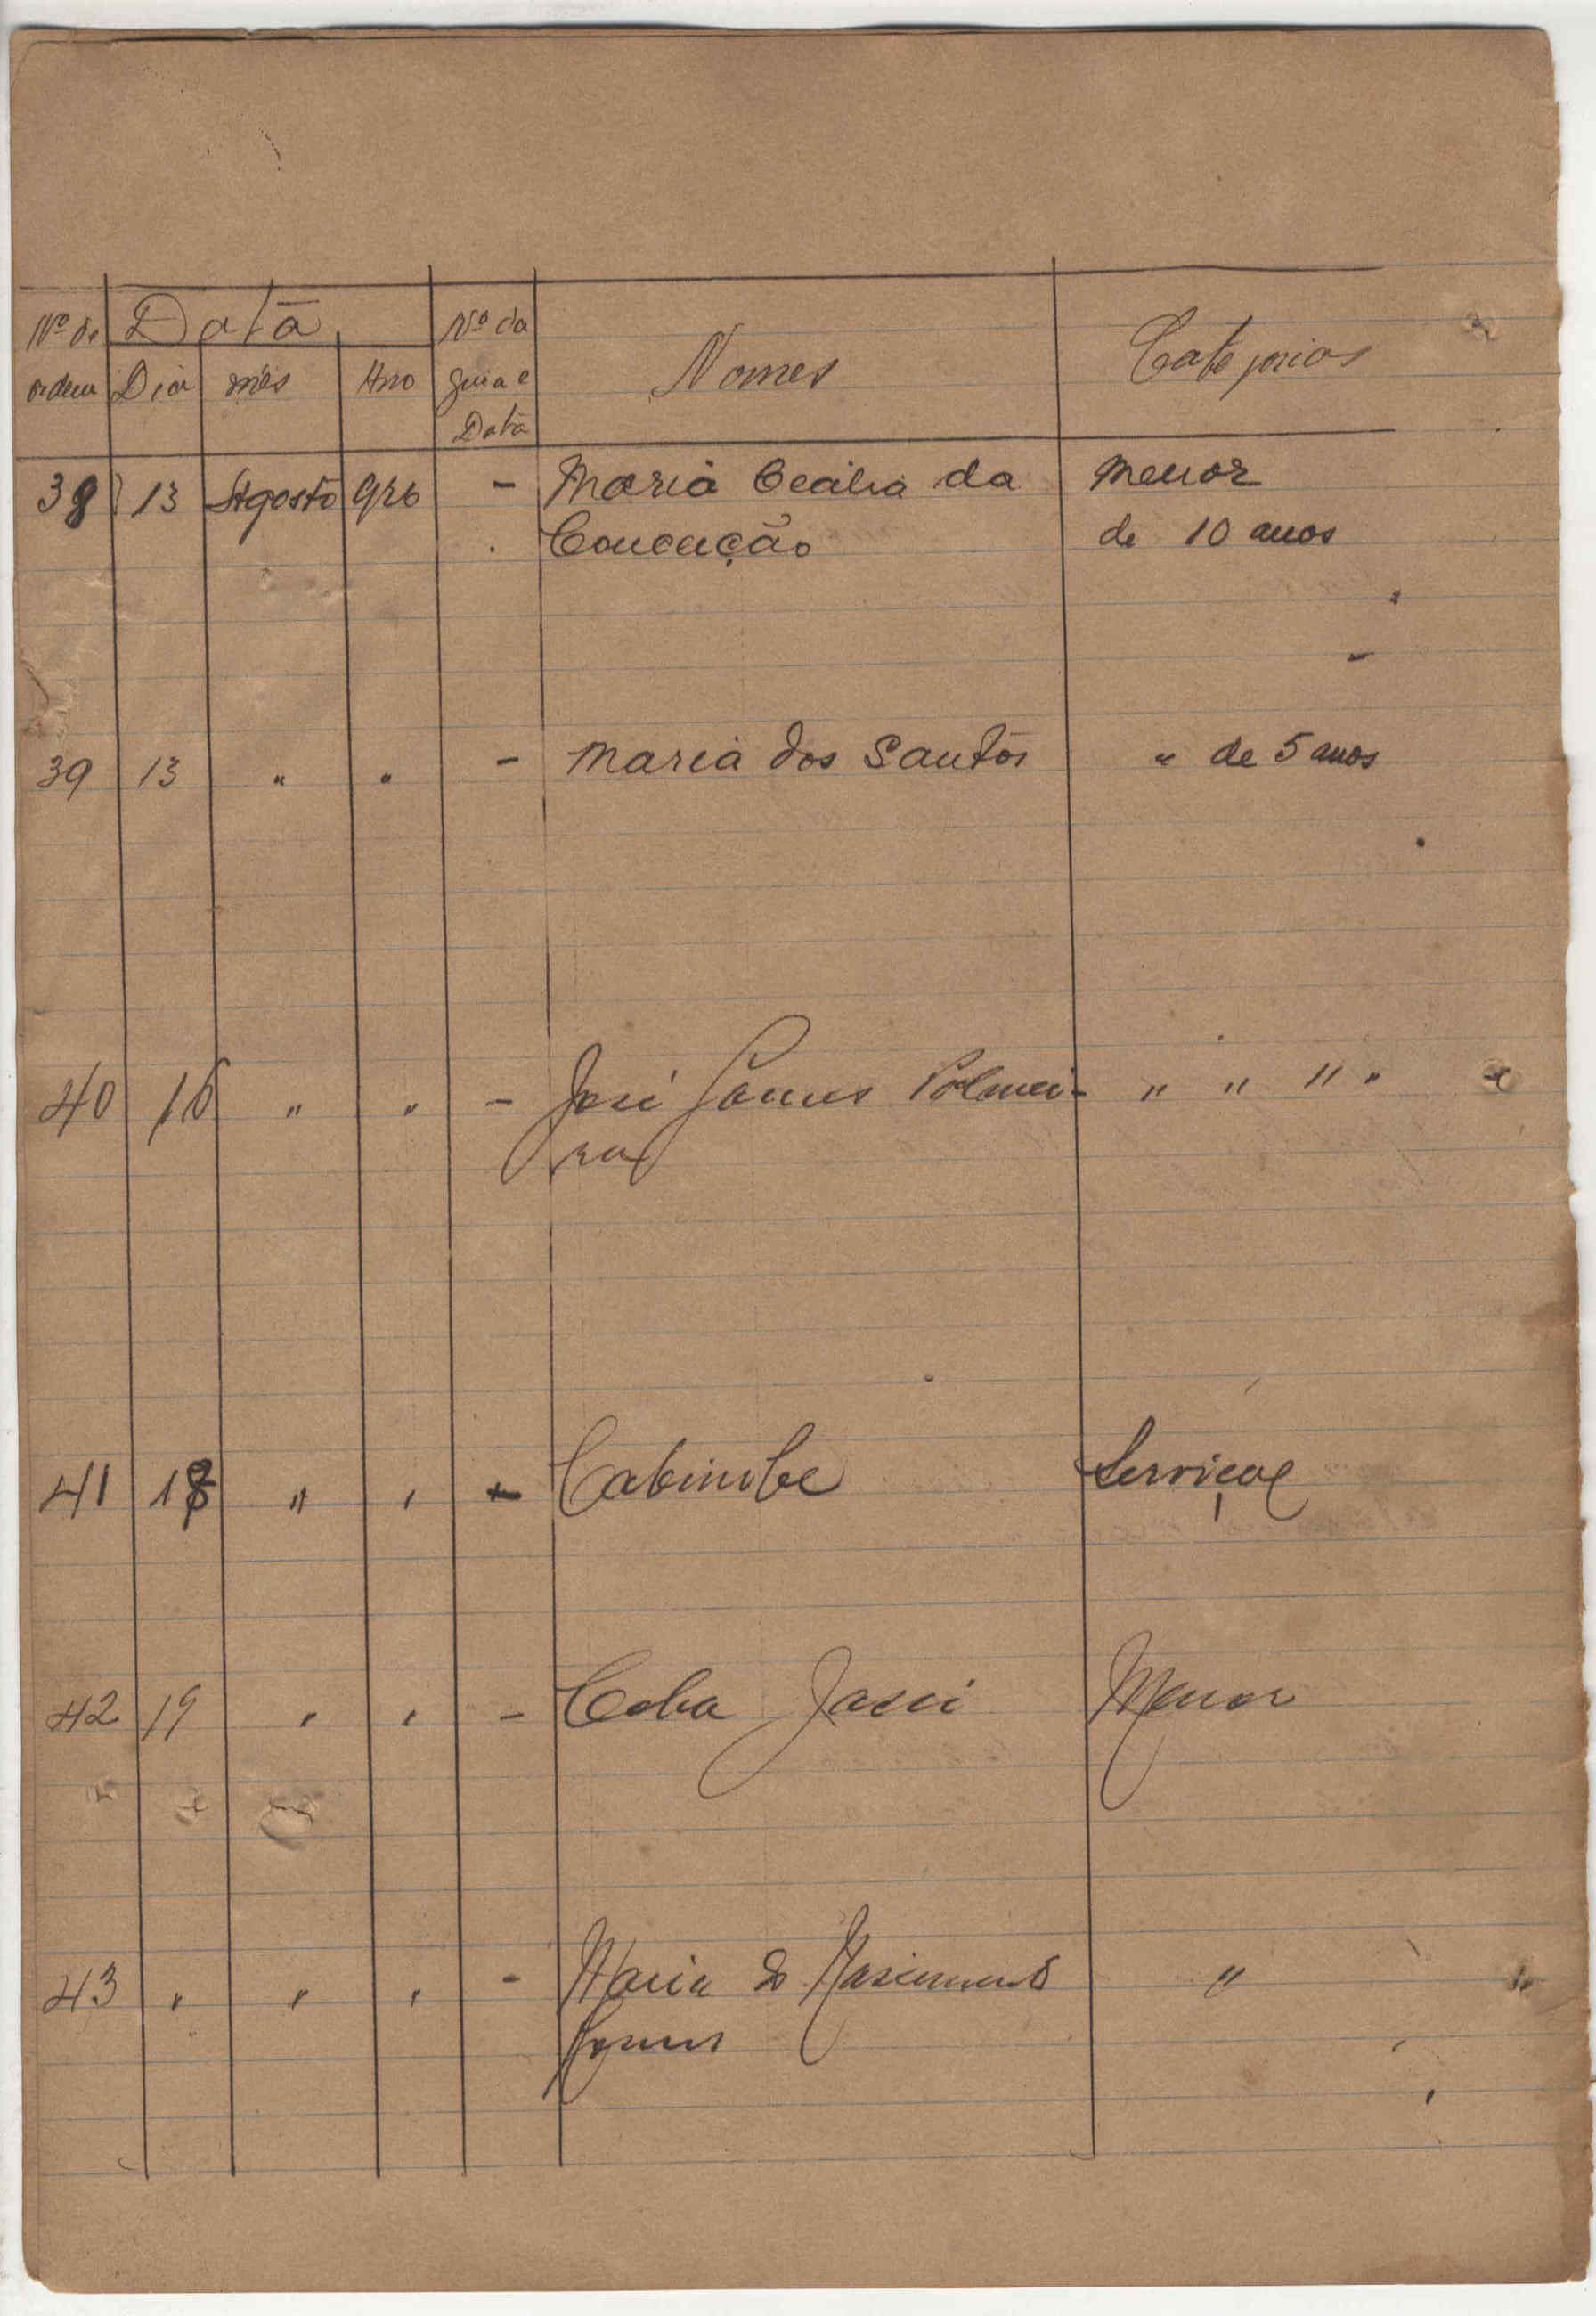 Nº de Data Nº da
ordem Dia mês Ano guia e Nomes Categorias
Data
38 13 Agosto 926 - Maria Cecilia da Menor
Conceição de 10 anos
39 13 " " - Maria dos Santos " de 5 anos
40 16 " " - José Gomes Palmei- " " " "
ra
41 18 " " - Serviçal
42 19 " " - Menor
43 " " " - Maria do Nascimento "
Gomes